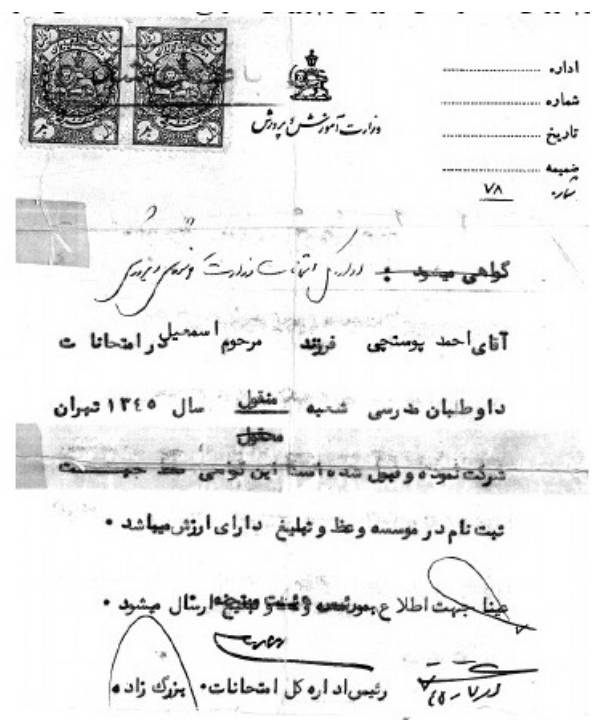 اداره
شماره
تاریخ
ضمیمه
شماره ۷۸
وزارت آموزش و پرورش
گواهی میشود :
آقای احمد پوستچی فرزند مرحوم اسمعیل در امتحانات
داوطلبان مدرسی شعبه منقول سال ۱۳٤٥ تهران
معقول
شرکت نموده و قبول شده است این گواهی فقط جهت
ثبت نام در موسسه وعظ و تبلیغ دارای ارزش میباشد ۰
عینا جهت اطلاع وعظ و تبلیغ ارسال میشود ۰
رئیس اداره کل امتحانات۰ بزرگ زاده